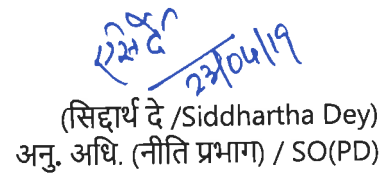 एसदे
23/04/19
(सिद्दार्थ दे /Siddhartha Dey)
अनु. अधि. (नीति प्रभाग) / SO(PD)